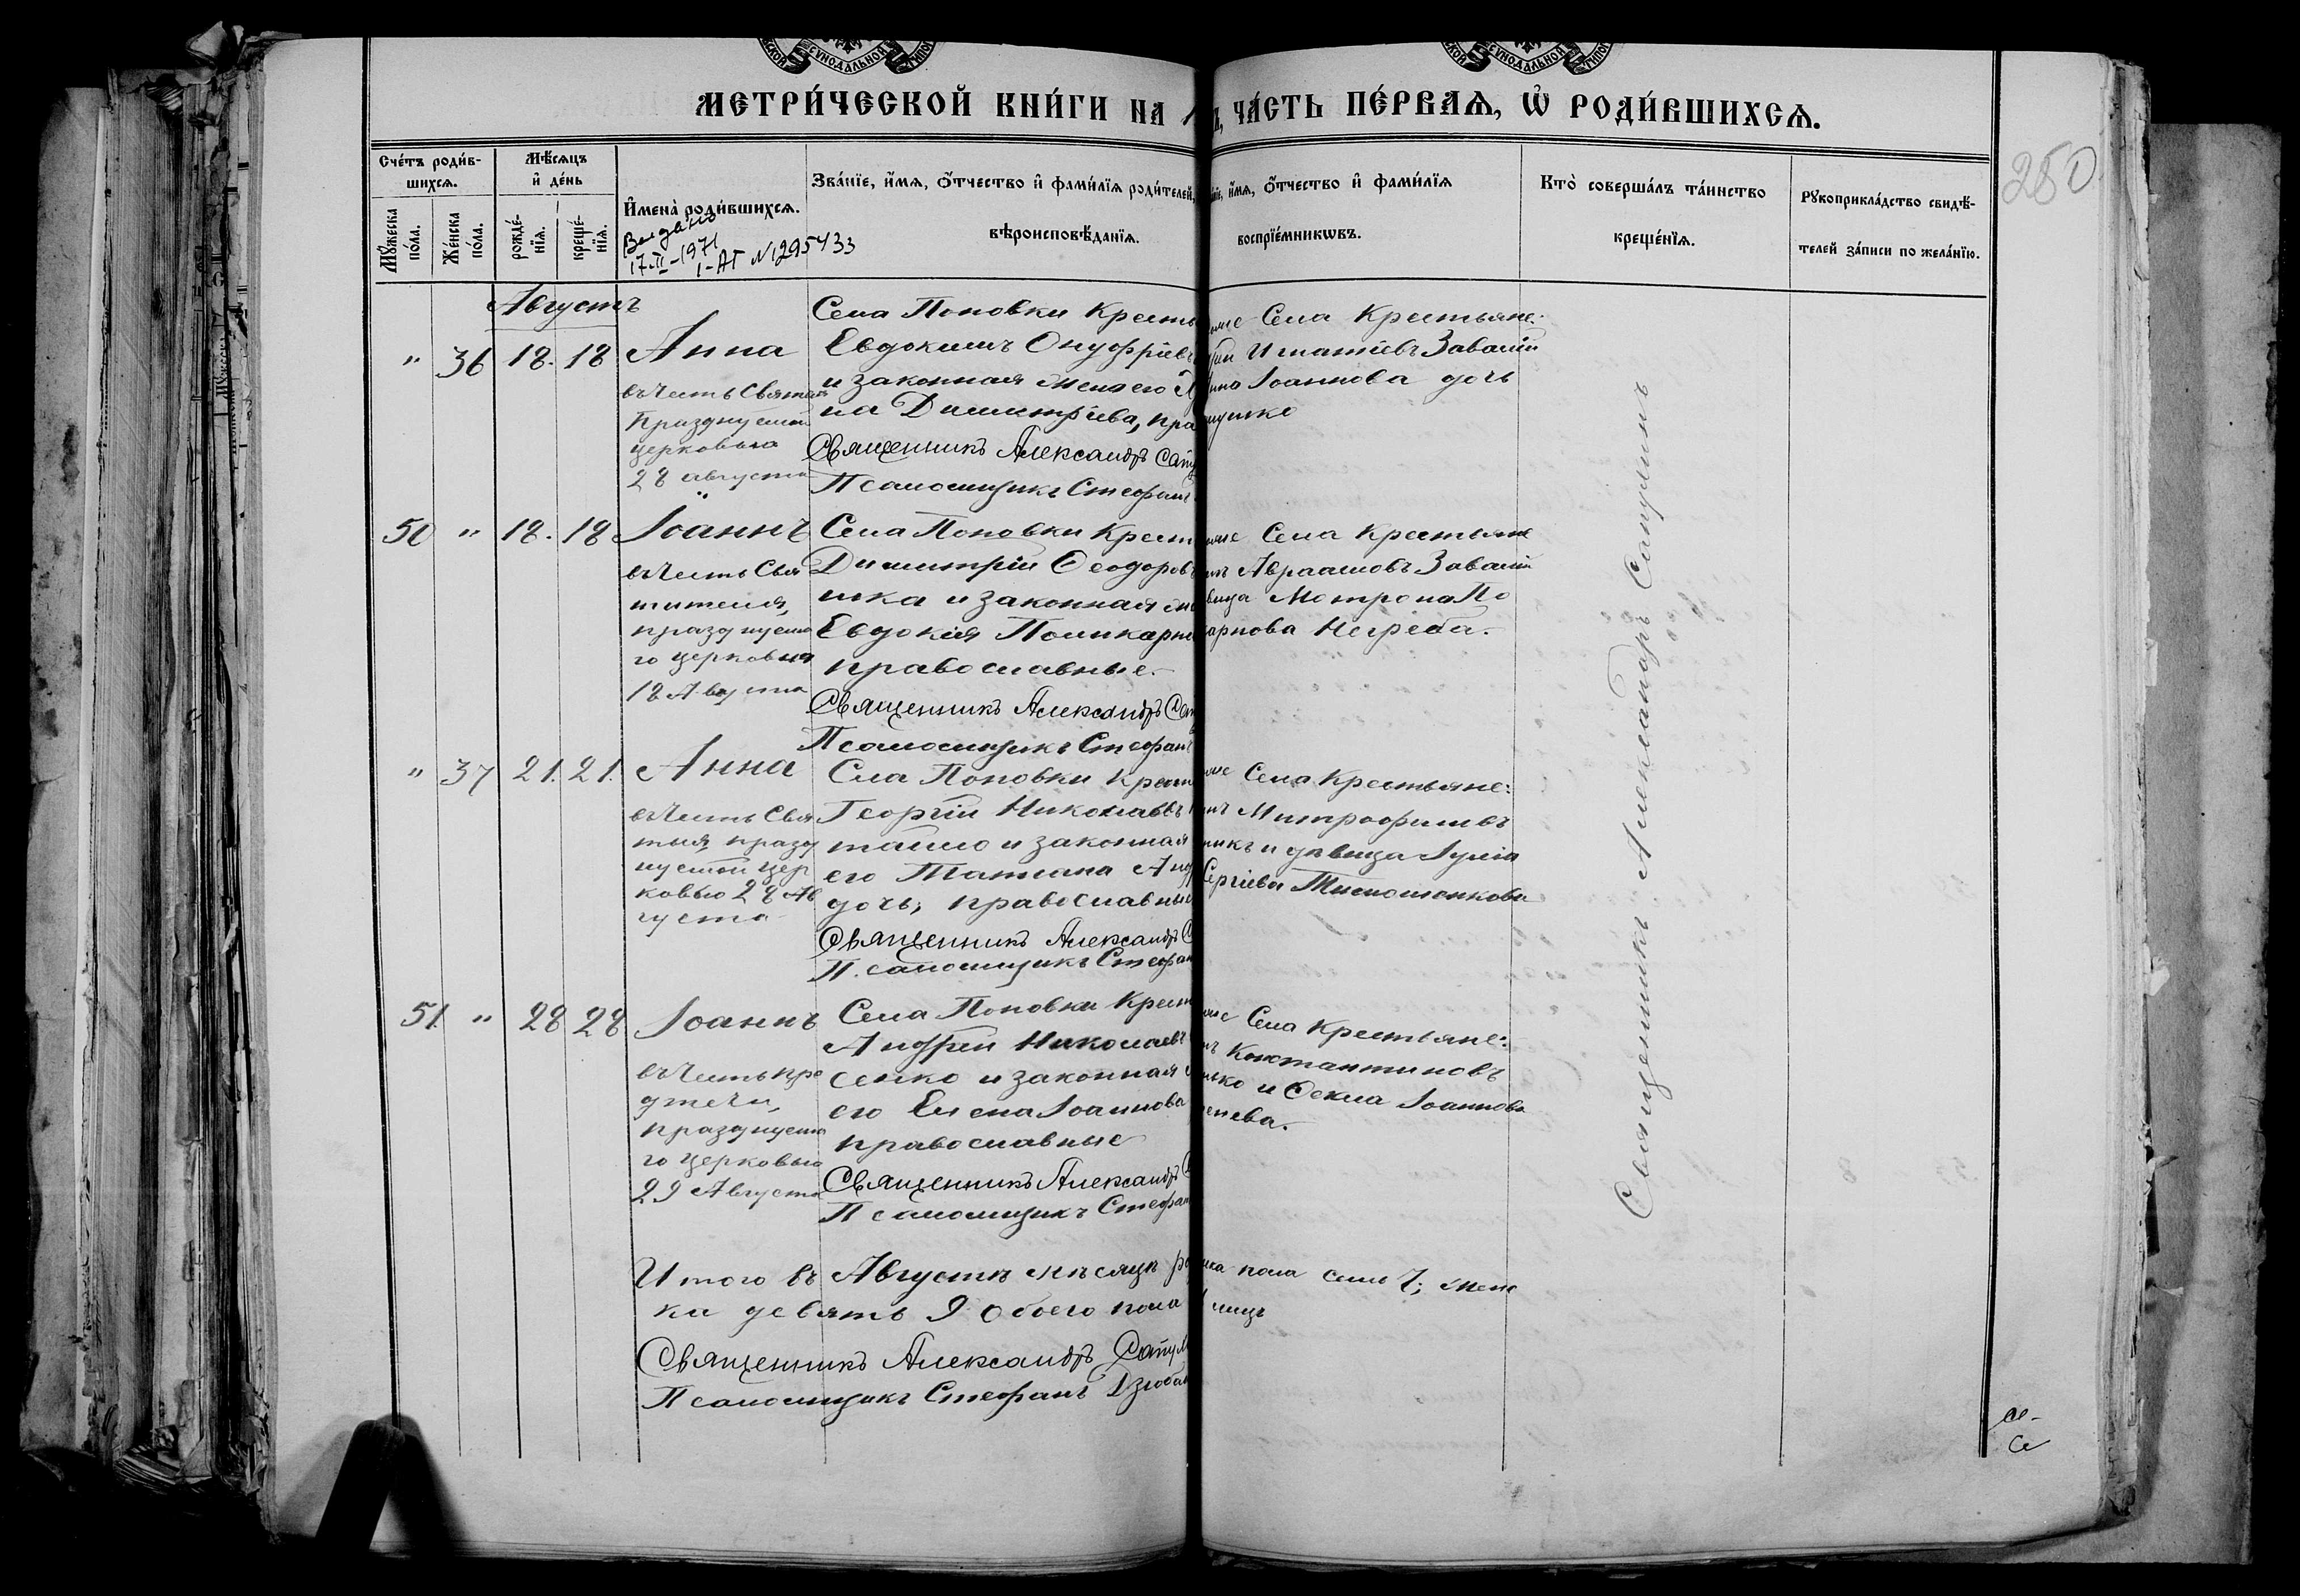 СУНОДАЛЬНОЙ
СУНОДАЛЬНОЙ
МЕТРИ́ЧЕСКОЙ КНИ́ГИ НА
ЧА́СТЬ ПЕ́РВАѦ, Ѡ҆ РОДИ́ВШИХСѦ.
250
Сче́тъ роди́в-
шихсѧ.
Мꙋ́жеска по́ла.
Же́нска по́ла.
Мѣ́сѧцъ
и҆ де́нь
рожде́-
нїѧ.
креще́-
нїѧ.
И҆мена̀ роди́вшихсѧ.
Зва́нїе, и҆́мѧ, ѻ҆́тчество и҆ фами́лїѧ роди́телей,
вѣроисповѣ́данїѧ.
и҆́мѧ, ѻ҆́тчество и҆ фами́лїѧ
воспрїе́мникѡвъ.
Кто̀ соверша́лъ та́инство
креще́нїѧ.
Рꙋкоприкла́дство свидѣ́-
телей за́писи по жела́нїю.
17-II-1971
I-АГ №295433
Августъ
" 36 18. 18 Анна
въ честь Святыя
Празднуемой
церковью
28 августа
Села Поповки Кресть
Евдокимъ Онуфріевъ
и законная жена его
на Димитріева, пра
Священникъ Александръ
Псаломщикъ Стефанъ
Села Крестьяне:
Игнатіевъ Завалій
Іоаннова дочь
50 " 18. 18 Іоаннъ
въ честь Свя
тителя,
празднуема
го церковью
18 Августа
Села Поповки Крест
Димитрій Ѳеодоровъ
шка и законная
Евдокія Поликарпо
православные.
Священникъ Александръ
Псаломщикъ Стефанъ
Села Крестьяне
Авраамовъ Завалій
вица Мотрона По
карпова Негреба.
" 37 21. 21. Анна
въ честь Свя
тыя, празд
нуемой цер
ковью 28 Ав
густа
Села Поповки Крест
Георгій Николаевъ
и законная
его Татіана
дочь, православные
Священникъ Александръ
Псаломщикъ Стефанъ
Села Крестьяне:
Митрофановъ
и дѣвица Іулія
Сергіева Тимошенкова
51. " 28 28 Іоаннъ
въ честь Пре
дтечи,
празднуема
го церковью
29 Августа
Села Поповки Крест
Андрей Николаевъ
сенко и законная
его Елена Іоаннова
православные
Священникъ Александръ
Псаломщикъ Стефанъ
Села Крестьяне:
Константиновъ
и Ѳекла Іоаннова
Священникъ Александръ Сапухинъ
Итого въ Августѣ мѣсяцѣ
пола семь 7; женс
ка девять 9 обоего пола
лицъ
Священникъ Александръ
Псаломщикъ Стефанъ